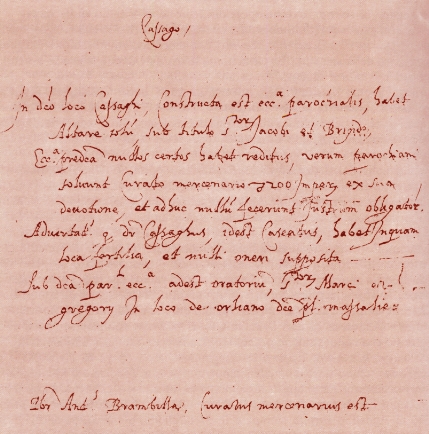 Cassago /
In dco loco Cassaghi, Constructa est ecc.a parochialis, habet
Altare solu sub titulo s.tor Jacobi et Brigide,
Ecc.a predca nullos certos habet reditus, verum parochiani
solvunt Curato mercenario 200 Imper. ex sua
devotione, et adhuc nullu fecerunt Instrom obligator.
Advertat. q. dr Cassaghus, idest Caseatus, habet
loca fertilia, et null. oneri supposita
Sub dca par.li ecc.a adest oratoriu s.tor Marci et
gregory In loco de oriano dce pl. massalie:
Pbr Ant.s Brambilla, Curatus mercenarius est